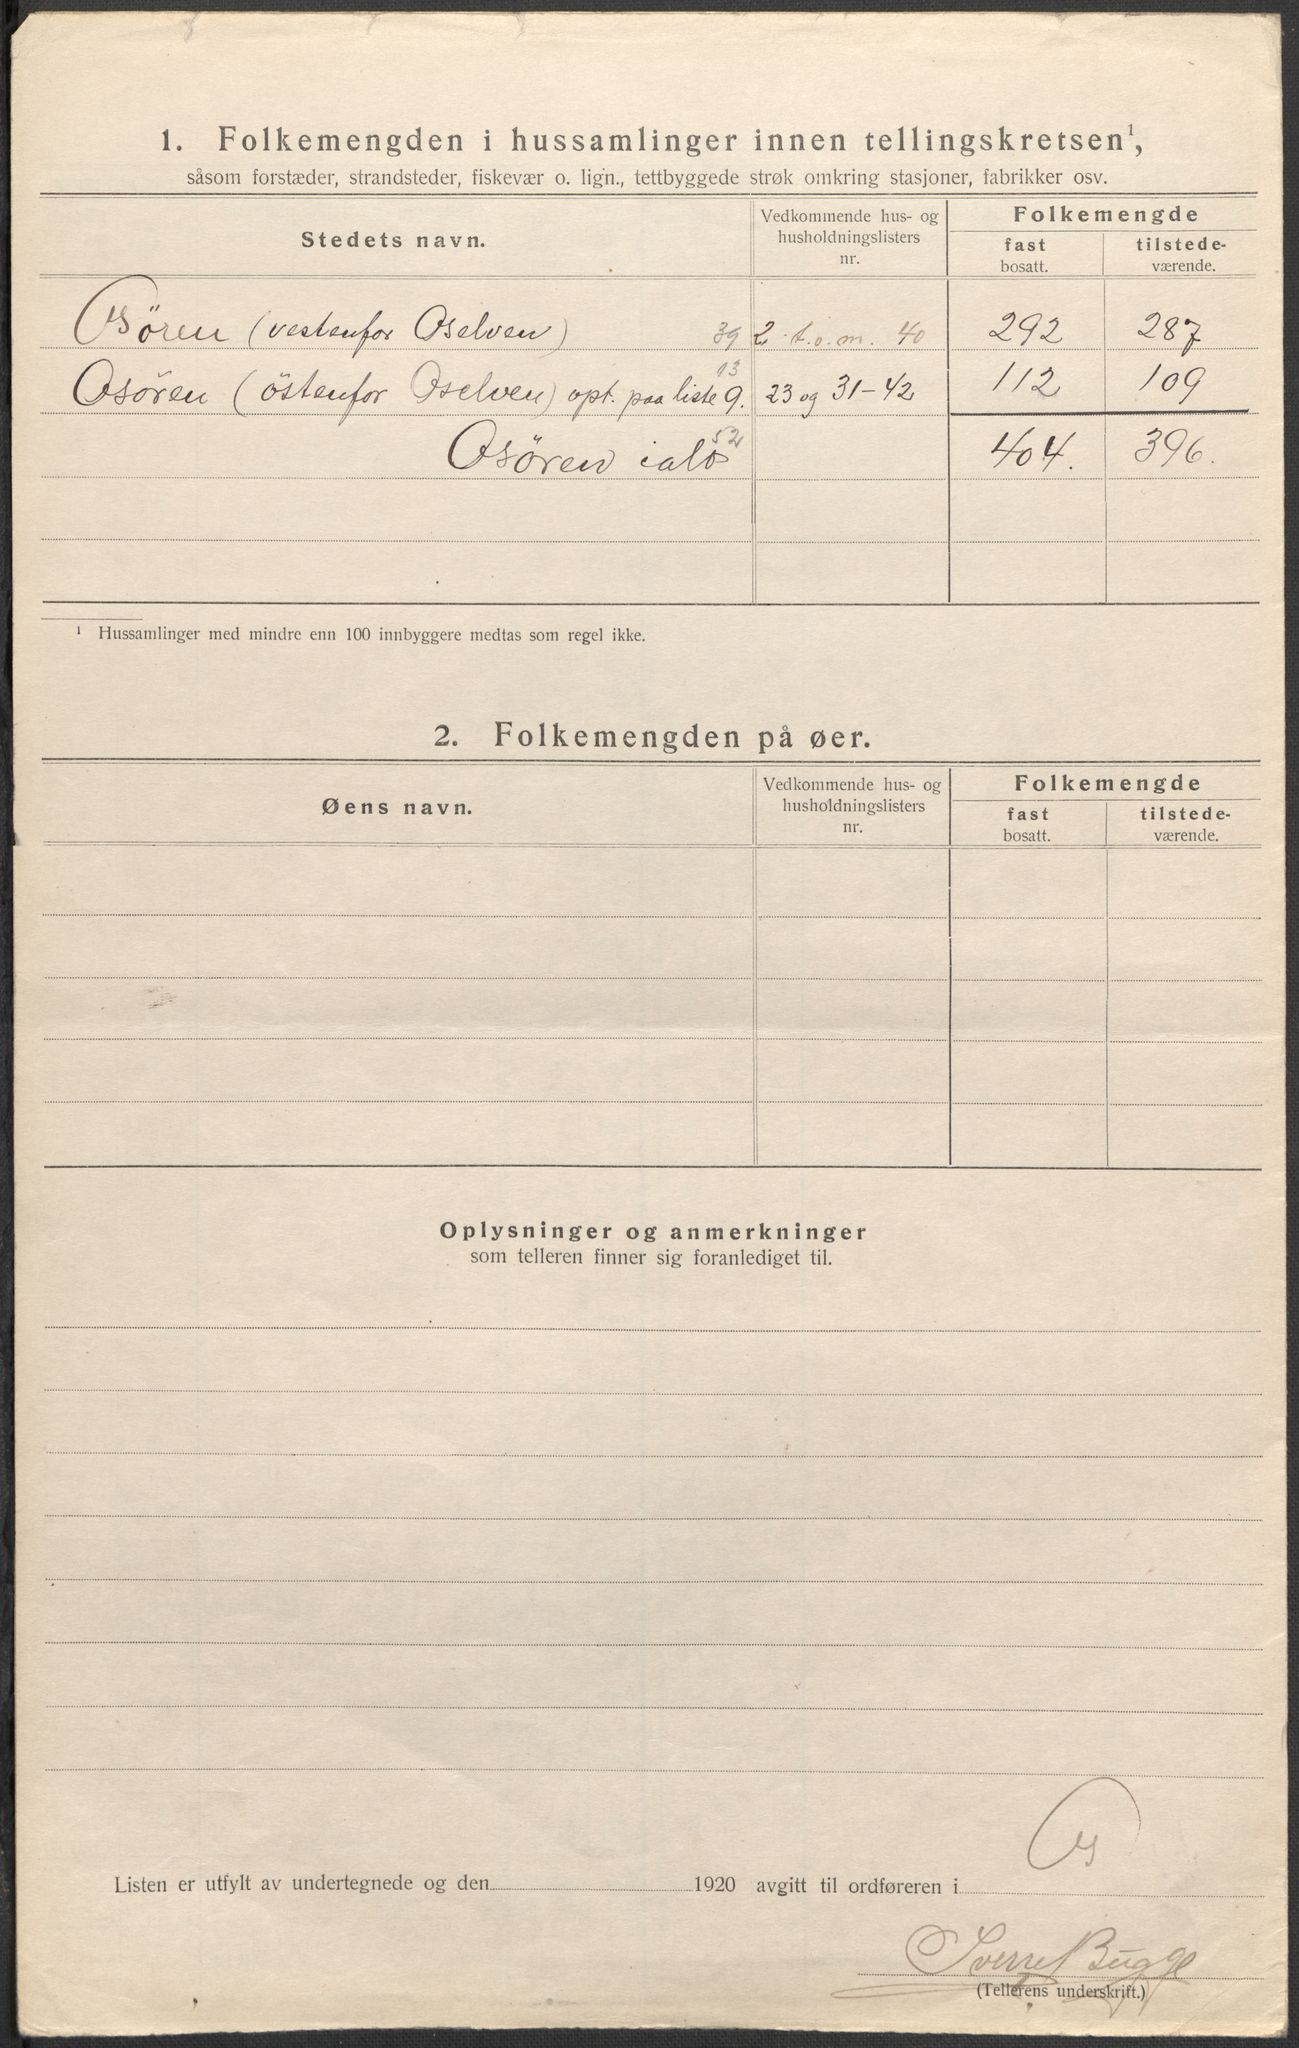 1. Folkemengden i hussamlinger innen tellingskretsen¹,
såsom forstæder, strandsteder, fiskevær o. lign., tettbyggede strøk omkring stasjoner, fabrikker osv.
Stedets navn.
Vedkommende hus- og
husholdningslisters
nr.
Folkemengde
fast
bosatt.
tilstede-
værende.
Osören (vestenfor Oselven) 39 2 t.o.m. 40 292 287
13
Osören (östenfor Oselven) opt. paa liste 9. 23 og 31-42 112 109
52
Osören ialt 404. 396.
¹ Hussamlinger med mindre enn 100 innbyggere medtas som regel ikke.
2. Folkemengden på øer.
Øens navn.
Vedkommende hus- og
husholdningslisters
nr.
Folkemengde
fast
bosatt.
tilstede-
værende.
Oplysninger og anmerkninger
som telleren finner sig foranlediget til.
Listen er utfylt av undertegnede og den 1920 avgitt til ordføreren i Os
Sverre Bugge
(Tellerens underskrift.)